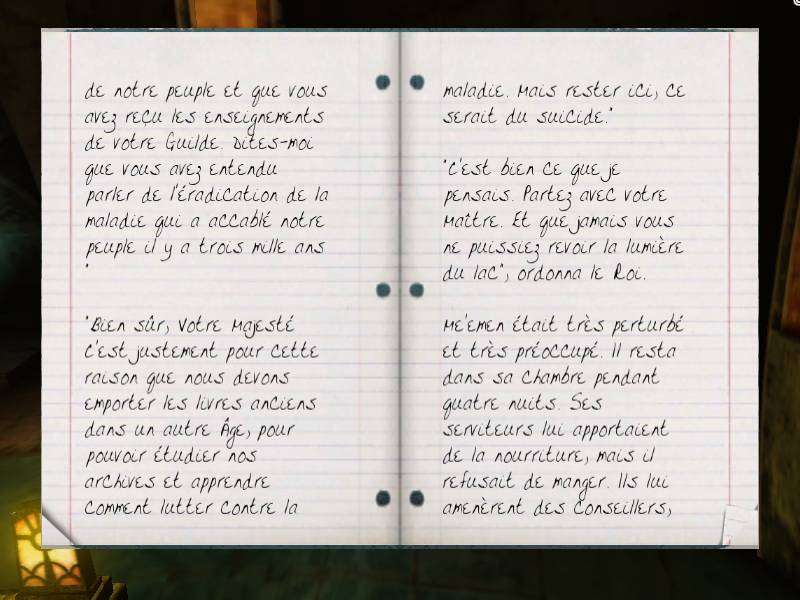 de notre peuple et que vous
avez reçu les enseignements
de votre Guilde. Dites-moi
que vous avez entendu
parler de l'éradication de la
maladie qui a accablé notre
peuple il y a trois mille ans
"
"Bien sûr, Votre Majesté
C'est justement pour cette
raison que nous devons
emporter les livres anciens
dans un autre Âge, pour
pouvoir étudier nos
archives et apprendre
comment lutter contre la
maladie. Mais rester ici, ce
serait du suicide."
"C'est bien ce que je
pensais. Partez avec votre
Maître. Et que jamais vous
ne puissiez revoir la lumière
du lac", ordonna le Roi.
Me'emen était très perturbé
et très préoccupé. Il resta
dans sa chambre pendant
quatre nuits. Ses
serviteurs lui apportaient
de la nourriture, mais il
refusait de manger. Ils lui
amenèrent des Conseillers,